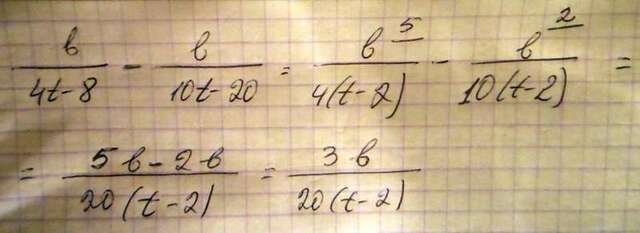 b/(4t-8) - b/(10t-20) = b 5/(4(t-2)) - b 2/(10(t-2)) =
= (5b-2b)/(20(t-2)) = 3b/(20(t-2))